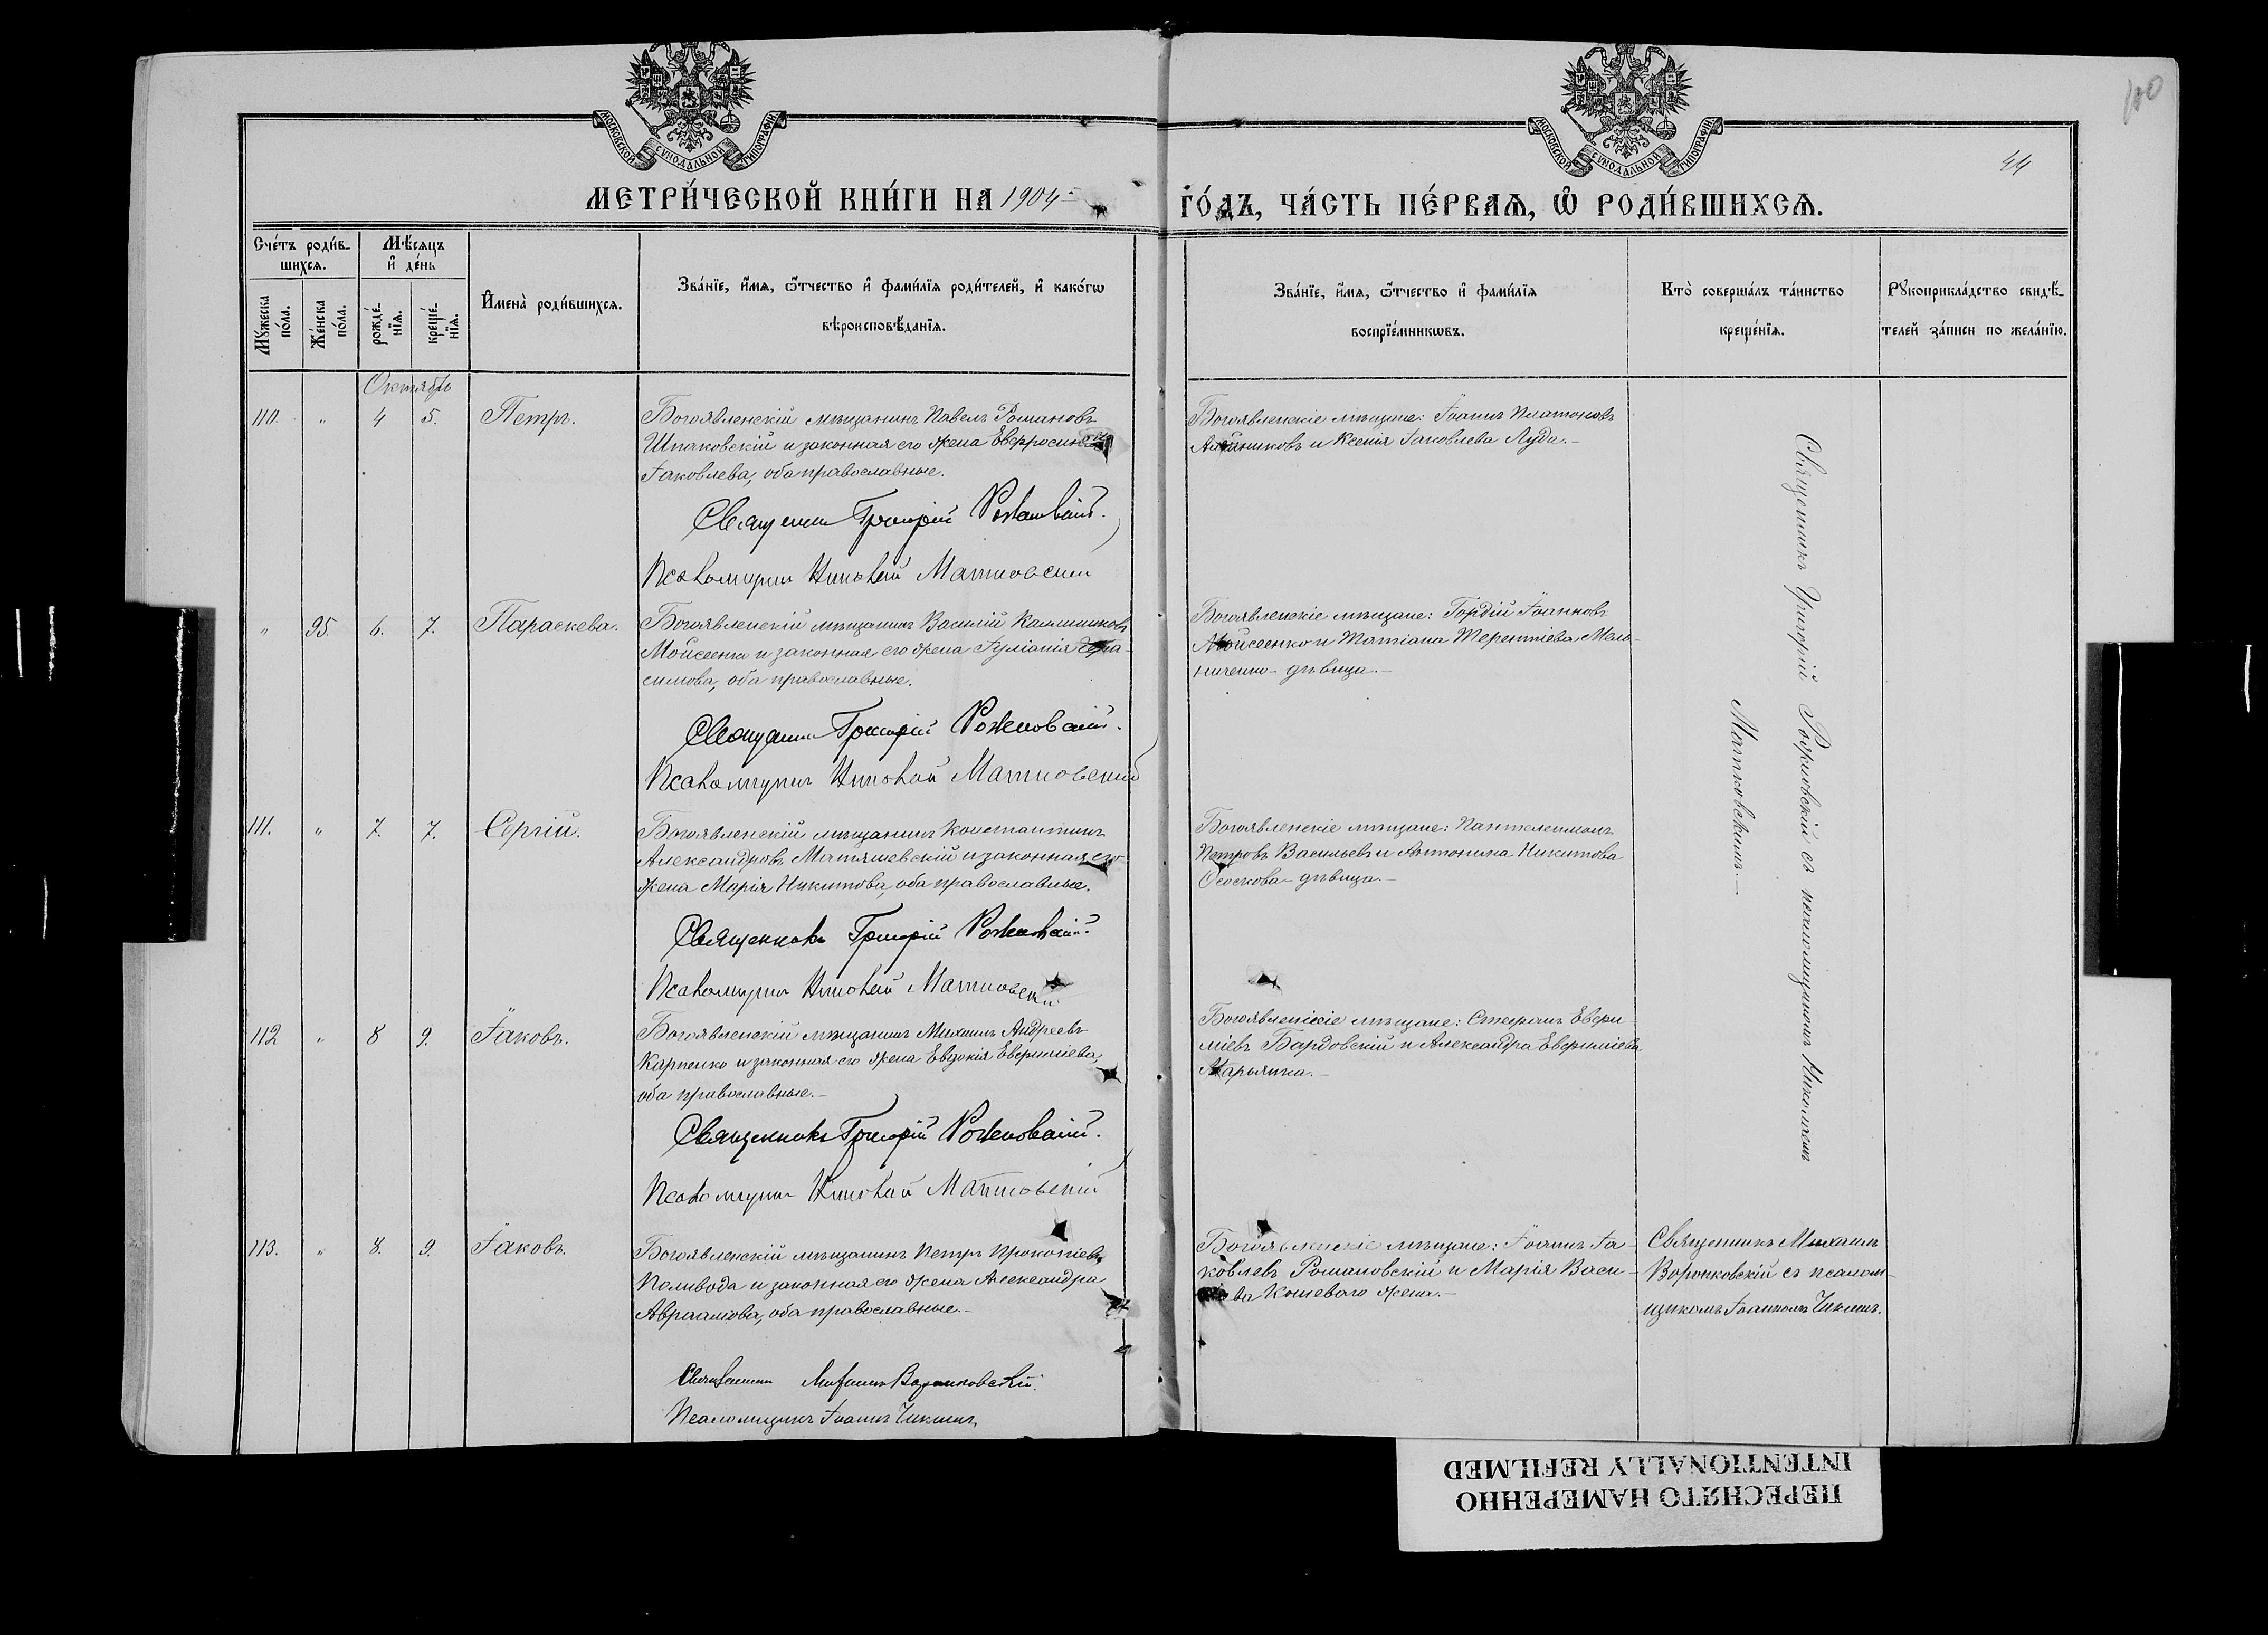 МОСКОВСКОЙ СУНОДАЛЬНОЙ ТИПОГРАФІИ
МОСКОВСКОЙ СУНОДАЛЬНОЙ ТИПОГРАФІИ
100
44
МЕТРИ́ЧЕСКОЙ КНИ́ГИ НА 1904
ГО́ДЪ, ЧА́СТЬ ПЕ́РВАѦ, Ѡ РОДИ́ВШИХСѦ.
Сче́тъ роди́в-
шихсѧ.
Мѣ́сѧцъ
и де́нь
Мꙋ́жеска
по́ла.
Же́нска
по́ла.
рожде́-
нїѧ.
креще́-
нїѧ.
Имена̀ роди́вшихсѧ.
Зва́нїе, и́мѧ, ѻ҆́тчество и фами́лїѧ роди́телей, и како́гѡ
вѣроисповѣ́данїѧ.
Зва́нїе, и́мѧ, ѻ҆́тчество и фами́лїѧ
воспрїе́мникѡвъ.
Кто̀ соверша́лъ та́инство
креще́нїѧ.
Рꙋкоприкла́дство свидѣ́-
телей за́писи по жела́нїю.
Октябрь
110. " 4 5. Петръ.
Богоявленскій мѣщанинъ Павелъ Романовъ
Шпаковскій и законная его жена Евфросинія
Іаковлева, оба православные.
Священникъ Григорій Рожковскій.
Псаломщикъ Николай Матковскій
Богоявленскіе мѣщане: Іоаннъ Платоновъ
и Ксенія Іаковлева Луда.-
" 95. 6. 7. Параскева.
Богоявленскій мѣщанинъ Василій Каллиниковъ
Мойсеенко и законная его жена Іуліанія Гера-
симова, оба православные.
Священникъ Григорій Рожковскій.
Псаломщикъ Николай Матковскій
Богоявленскіе мѣщане: Гордій Іоанновъ
Мойсеенко и Татіана Терентіева Мель-
ниченко - дѣвица.-
111. " 7. 7. Сергій.
Богоявленскій мѣщанинъ Константинъ
Александровъ Матяшевскій и законная его
жена Марія Никитова, оба православные.
Священникъ Григорій Рожковскій.
Псаломщикъ Николай Матковскій
Богоявленскіе мѣщане: Пантелеимонъ
Петровъ Васильевъ и Антонина Никитова
Ососкова - дѣвица.-
Священникъ Григорій Рожковскій съ псаломщикомъ Николаемъ
Матковскимъ.-
112 " 8 9. Іаковъ.
Богоявленскій мѣщанинъ Михаилъ Андреевъ
Карпенко и законная его жена Евдокія Евфиміева,
оба православные.-
Священникъ Григорій Рожковскій.
Псаломщикъ Николай Матковскій
Богоявленскіе мѣщане: Стефанъ Евфи
міевъ Бардовскій и Александра Евфиміева
Марьянка.-
113. " 8. 9. Іаковъ.
Богоявленскій мѣщанинъ Петръ Прокопіевъ
Поливода и законная его жена Александра
Авраамова, оба православные.-
Священникъ Михаилъ Воронковскій.
Псаломщикъ Іоаннъ Чикинъ
Богоявленскіе мѣщане: Іоаннъ Іа-
ковлевъ Романовскій и Марія Васи-
ва Кошевого жена.-
Священникъ Михаилъ
Воронковскій съ псалом-
щикомъ Іоанномъ Чикинъ.
ПЕРЕСНЯТО НАМЕРЕННО
INTENTIONALLY REFILMED